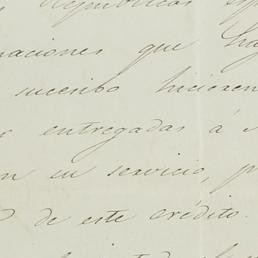 Repúblicas
naciones que
sucesivo hicieren
entregadas á
en su servicio, p
de este crédito.